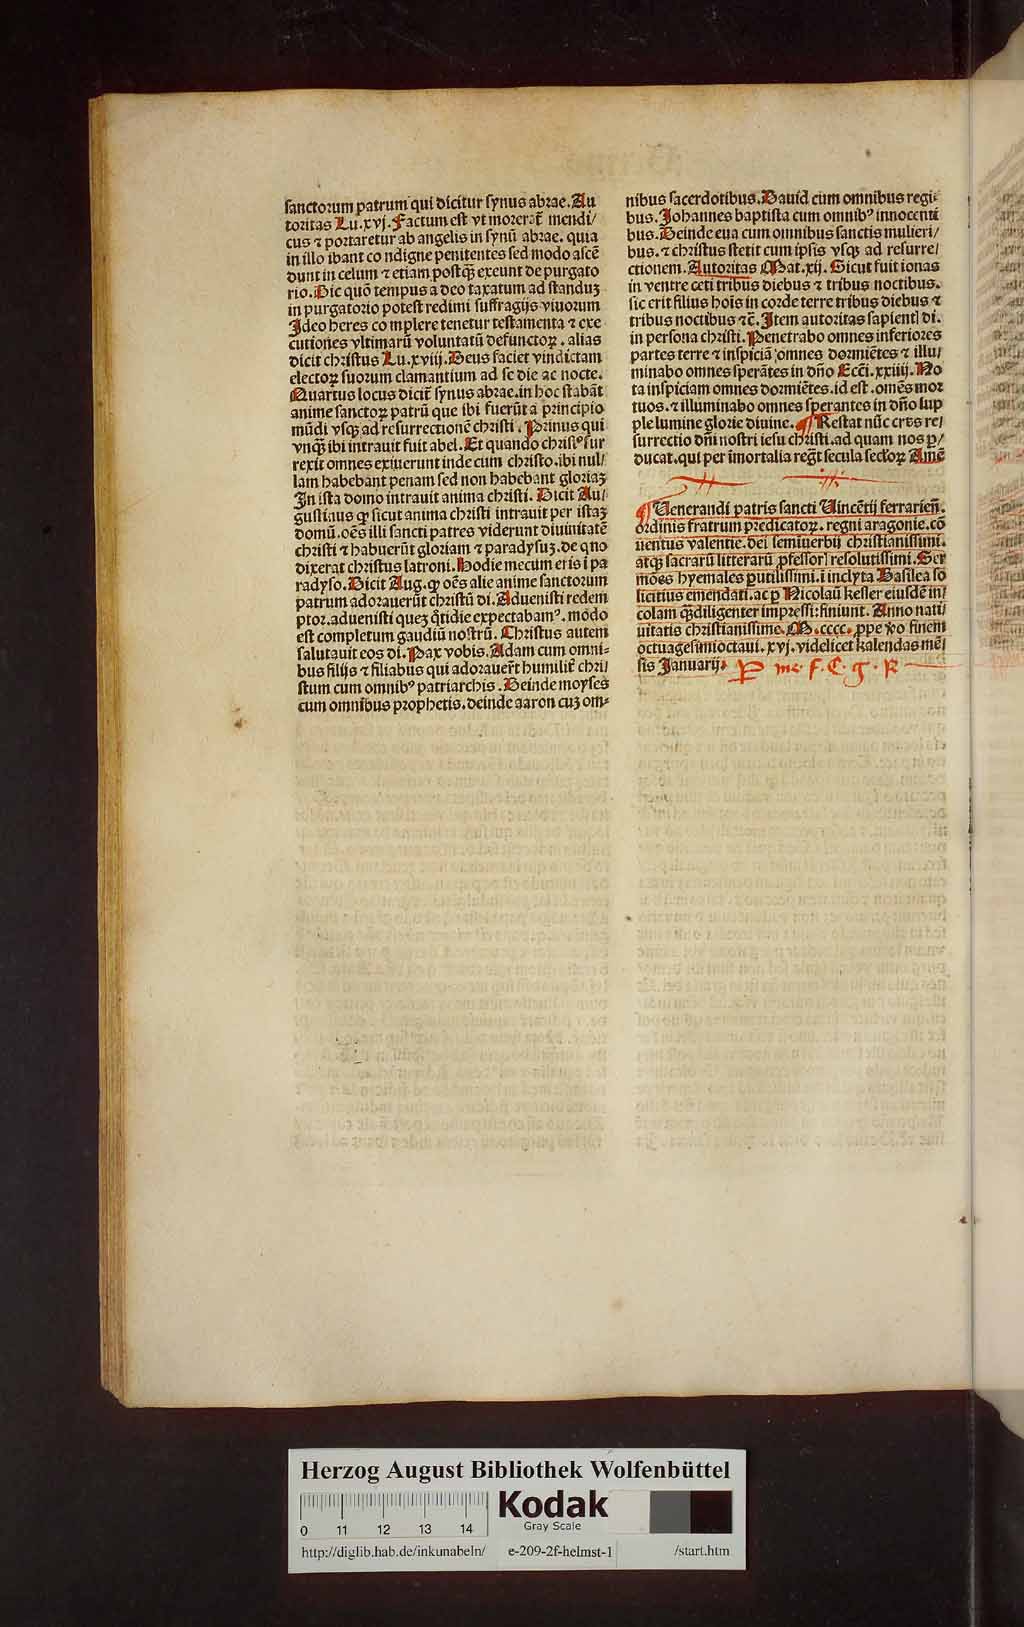 sanctorum patrum qui dicitur synus abrae. Au
toritas Lu.xvj. Factum est vt morereť mendi/
cus ⁊ portaretur ab angelis in synū abrae. quia
in illo ibant co ndigne penitentes sed modo ascē
dunt in celum ⁊ etiam postq̄ȝ exeunt de purgato
rio. Hic quō tempus a deo taxatum ad standuȝ
in purgatorio potest redimi suffragijs viuorum
Ideo heres co mplere tenetur testamenta ⁊ exe
cutiones vltimarū voluntatū defunctoꝝ. alias
dicit christus Lu.xviij. Deus faciet vindictam
electoꝝ suorum clamantium ad se die ac nocte.
Quartus locus diciť synus abrae. in hoc stabāt
anime sanctoꝝ patrū que ibi fuerūt a principio
mūdi vsqȝ ad resurrectionē christi. Prinus qui
vnqȝ ibi intrauit fuit abel. Et quando christꝰ sur
rexit omnes exiuerunt inde cum christo. ibi nul/
lam habebant penam sed non habebant gloriaȝ
In ista domo intrauit anima christi. Dicit Au/
gustinus ꝙ sicut anima christi intrauit per istaȝ
domū. oēs illi sancti patres viderunt diuinitatē
christi ⁊ habuerūt gloriam ⁊ paradysuȝ. de quo
dixerat christus latroni. Hodie mecum eris i pa
radyso. Dicit Aug. ꝙ oēs alie anime sanctorum
patrum adorauerūt christū di. Aduenisti redem
ptor. aduenisti queȝ q̄tidie expectabamꝰ. modo
est completum gaudiū nostrū. Christus autem
salutauit eos di. Pax vobis. Adam cum omni-
bus filijs ⁊ filiabus qui adorauer̄t humiliť chri/
stum cum omnibꝰ patriarchis. Deinde moyses
cum omnibus prophetis. deinde aaron cuȝ om-
nibus sacerdotibus. Dauid cum omnibus regi-
bus. Johannes baptista cum omnibꝰ innocenti
bus. Deinde eua cum omnibus sanctis mulieri/
bus. ⁊ christus stetit cum ipsis vsqȝ ad resurre/
ctionem. Autoritas Mat.xij. Sicut fuit ionas
in ventre ceti tribus diebus ⁊ tribus noctibus.
sic erit filius hoīs in corde terre tribus diebus ⁊
tribus noctibus ⁊c̄. Item autoritas sapientꝭ di.
in persona christi. Penetrabo omnes inferiores
partes terre ⁊ inspiciā omnes dormiētes ⁊ illu/
minabo omnes sperātes in dño Ecci.xxiiij. No
ta inspiciam omnes dormiētes. id est. omēs mor
tuos. ⁊ illuminabo omnes sperantes in dño sup
ple lumine glorie diuine. ¶ Restat nūc cras re/
surrectio dñi nostri iesu christi. ad quam nos ꝑ/
ducat. qui per īmortalia regť secula secƚoꝝ Amē
¶ Venerandi patris sancti Vincētij ferrarień.
ordinis fratrum predicatoꝝ. regni aragonie. cō
uentus valentie. dei semiuerbij christianissimi.
atqȝ sacrarū litterarū ꝓfessorꝭ resolutissimi. Ser
mōes hyemales ꝑutilissimi. i inclyta Basilea so
licitius emendati. ac ꝑ Nicolaū kesler eiusdē in/
colam qȝdiligenter impressi: finiunt. Anno nati/
uitatis christianissime. M.cccc. ꝓpe ꝟo finem
octuagesimioctaui. xvj. videlicet kalendas mē/
sis Januarij.
P me. f. C. g. R
Herzog August Bibliothek Wolfenbüttel
0 11 12 13 14
Kodak
Gray Scale
http://diglib.hab.de/inkunabeln/ e-209-2f-helmst-1 /start.htm